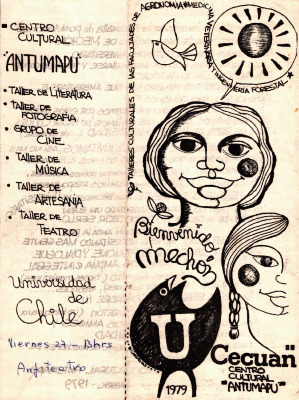 CENTRO
CULTURAL
"ANTUMAPU"
• TALLER DE LITERATURA
• TALLER DE
FOTOGRAFIA
• GRUPO DE
CINE
• TALLER DE
MÚSICA
• TALLER DE
ARTESANIA
• TALLER DE
TEATRO
Universidad
de
Chile
Viernes 27 - 18hrs
Anfiteatro
TALLERES CULTURALES DE LAS FACULTADES DE AGRONOMIA MEDICINA VETERINARIA INGENIERIA FORESTAL
Bienvenido
mechón
U
1979
Cecuan
CENTRO
CULTURAL
"ANTUMAPU"